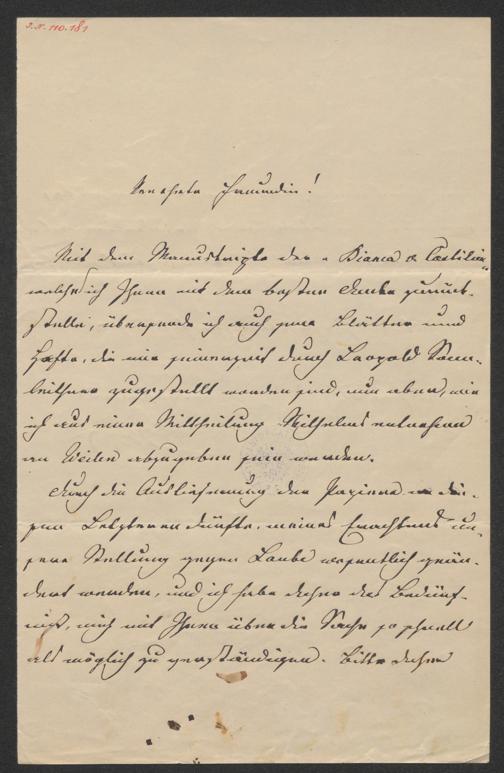 I.N. 110.181
Verehrte Freundin!
Mit dem Manuskripte der „Bianca v. Castilien"
welche ich Ihnen mit dem besten Danke zurück-
stelle, übersende ich auch jene Blätter und
Hefte, die mir seinerzeit durch Leopold Sonn-
leithner zugestellt worden sind, nun aber, wie
ich aus einer Mittheilung Wilhelms entnehme
an Weilen abzugeben sein werden.
Durch die Auslieferung der Papiere an die-
sen Letzteren dürfte, meines Erachtens un-
sere Stellung gegen Laube wesentlich geän-
dert werden, und ich habe daher das Bedürf-
niß, mich mit Ihnen über die Sache so schnell
als möglich zu verständigen. Bitte daher